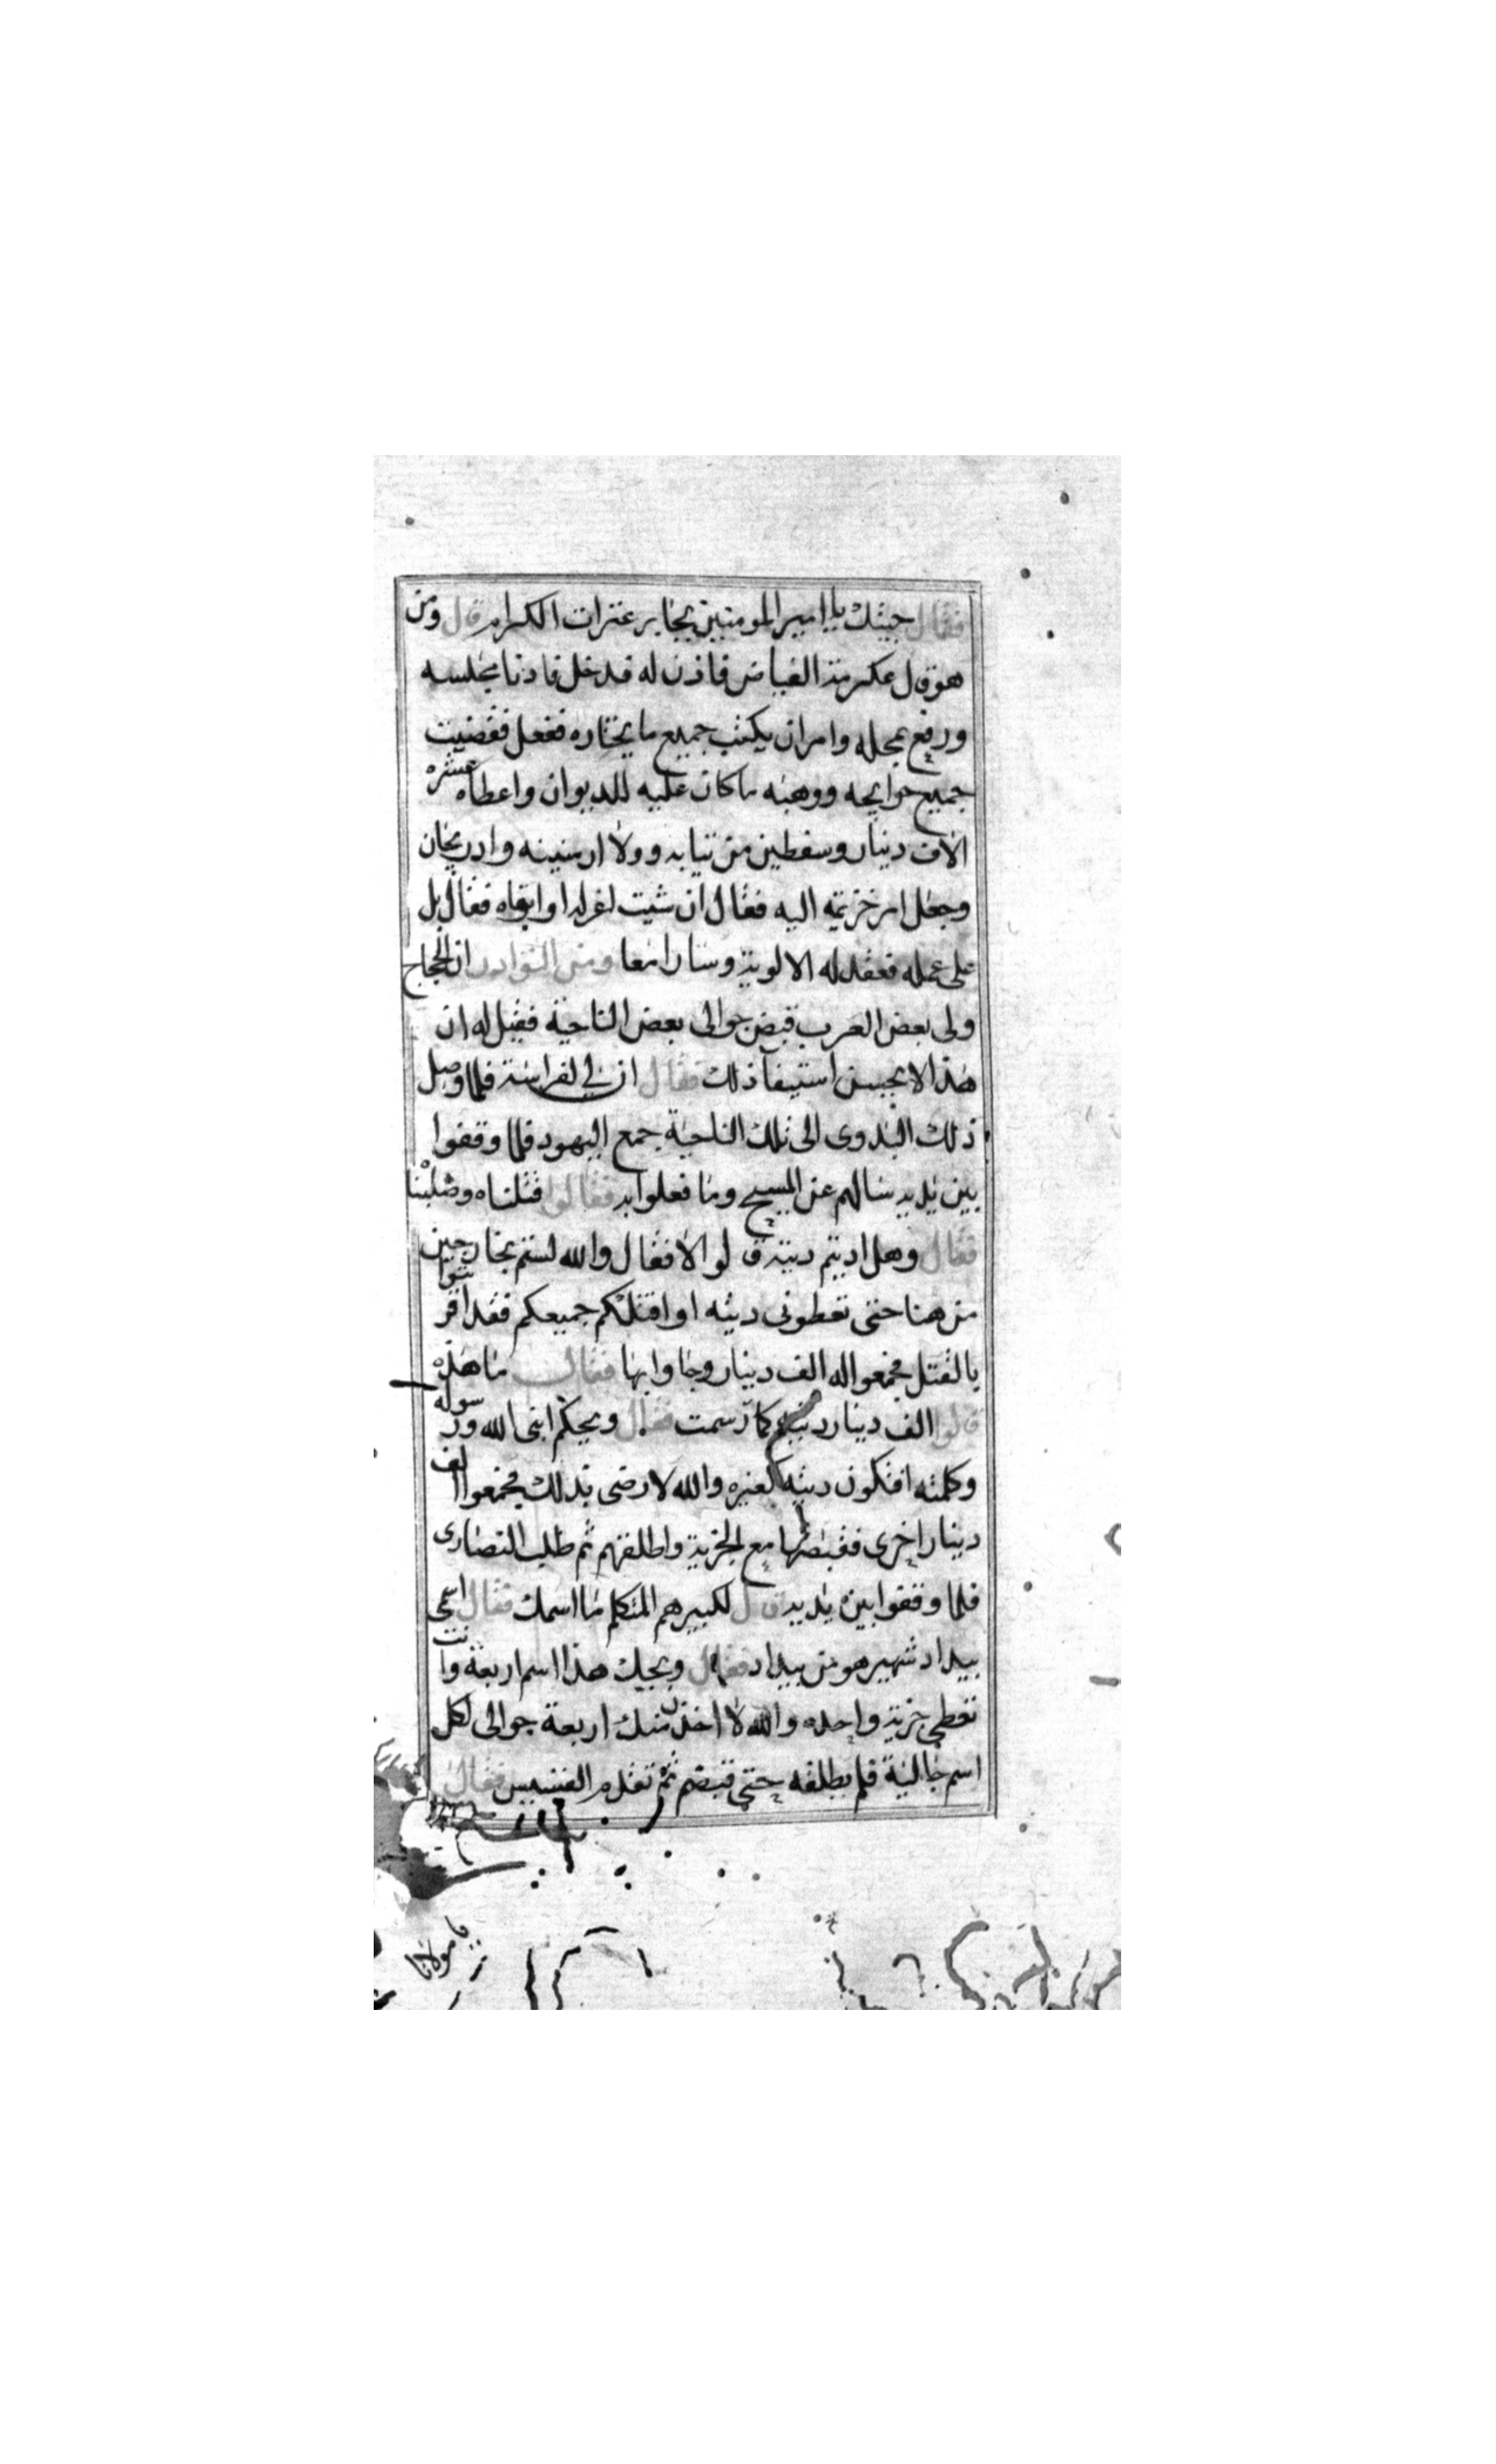 فقال جيتك يا امير المومنين بجابر عثرات الكرام قال ومن
هو قال عكرمة الفياض فاذن له فدخل فادنا مجلسه
ورفع محله وامر ان يكتب جميع ما يختاره ففعل فقضيت
جميع حوايجه ووهبه ما كان عليه للديوان واعطاه عشرة
الاف دينار وسفطين من ثيابه وولاه ارمينيه وادربيجان
وجعل امر خزيمة اليه فقال ان شيت اعزله او ابقاه فقال بل
على عمله فعقد له الالوية وسارا معا ومن النوادر ان الحجاج
ولى بعض العرب قبض جوالى بعض الناحية فقيل له ان
هذا لا يحسن استيفآ ذلك فقال ان لي فراسة فلما وصل
ذلك البدوى الى تلك الناحية جمع اليهود فلما وقفوا
بين يديه سالهم عن المسيح وما فعلوا به فقالوا قتلناه وصلبنا
فقال وهل اديتم ديته قالوا لا فقال والله لستم بخارجين
من هنا حتى تعطونى ديته او اقتلكم جميعكم فقد اقرتوا
بالقتل فجمعوا له الف دينار وجاوا بها فقال ما هذه
قالوا الف دينار ديته كما رسمت فقال ويحكم ابنى الله ورسوله
وكلمته افتكون ديته كغيره والله لا رضى بذلك فجمعوا الف
دينار اخرى فقبضها مع الجزية واطلقهم ثم طلب النصارى
فلما وقفوا بين يديه قال لكبيرهم المتكلم ما اسمك فقال اسمى
بيداد شهير هو من بيداد فقال ويحك هذا اسم اربعة وانت
تعطى جزية واحده والله لا اخذن منك اربعة جوالى لكل
اسم جالية فلم يطلقه حتى قبضهم ثم تقدم القسيس فقال
يا مولانا